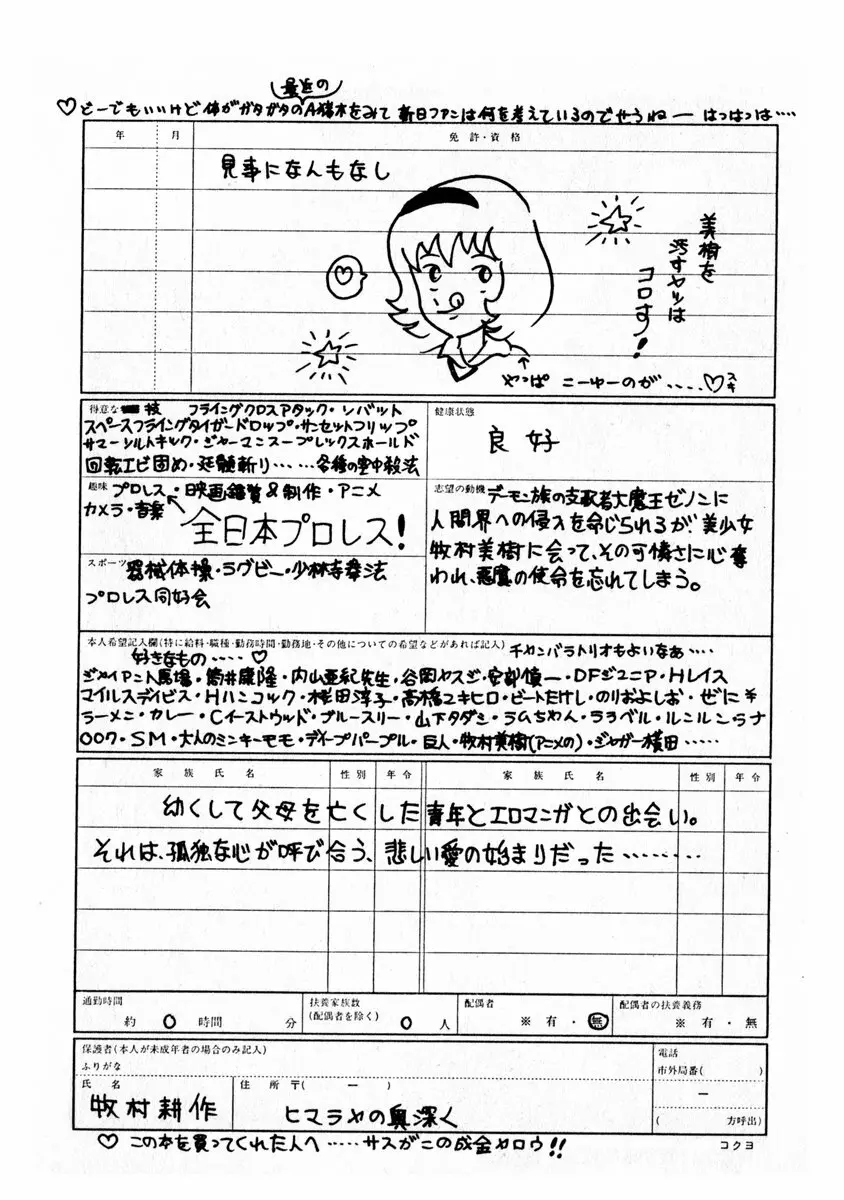 最近の
♡どーでもいいけど体がガタガタのA猪木をみて新日ファンは何を考えているのでせうねー はっはっは‥‥
年 月 免許・資格
見事になんもなし
美樹を
汚すヤツは
コロす!
♡
やっぱ こーゆーのが‥‥‥♡スキ
得意な 技 フライングクロスアタック・シバット
スペースフライングタイガードロップ・サンセットフリップ
サマーソルトキック・ジャーマンスープレックスホールド
回転エビ固め・延髄斬り‥‥‥各種の空中殺法
健康状態
良好
趣味 プロレス・映画鑑賞&制作・アニメ
カメラ・音楽
全日本プロレス!
志望の動機 デーモン族の支配者大魔王ゼノンに
人間界への侵入を命じられるが、美少女
牧村美樹に会って、その可憐さに心奪
われ、悪魔の使命を忘れてしまう。
スポーツ 器械体操・ラグビー・少林寺拳法
プロレス同好会
本人希望記入欄(特に給料・職種・勤務時間・勤務地・その他についての希望などがあれば記入) チャンバラトリオもよいなあ‥‥
好きなもの‥‥♡
ジャイアント馬場・筒井康隆・内山亜紀先生・谷岡ヤスジ・安部慎一・DFジュニア・Hレイス
マイルスデイビス・Hハンコック・桜田淳子・高橋ユキヒロ・ビートたけし・のりおよしお・ぜに¥
ラーメン・カレー・Cイーストウッド・ブルースリー・山下タダシ・ラムちゃん・ララベル・ルンルンラナ
007・SM・大人のミンキーモモ・デイープパープル・巨人・牧村美樹(アニメの)・ジャガー横田‥‥‥
家族氏名 性別 年令 家族氏名 性別 年令
幼くして父母を亡くした青年とエロマンガとの出会い。
それは、孤独な心が呼び合う、悲しい愛の始まりだった‥‥‥‥
通勤時間
約 0 時間 分
扶養家族数
(配偶者を除く) 0 人
配偶者
※ 有・無
配偶者の扶養義務
※ 有・無
保護者(本人が未成年者の場合のみ記入)
ふりがな
氏名 住所 〒( ー )
牧村耕作 ヒマラヤの奥深く
電話
市外局番( )
ー
( 方呼出)
♡この本を買ってくれた人へ‥‥‥サスがこの成金ヤロウ!!
コクヨ